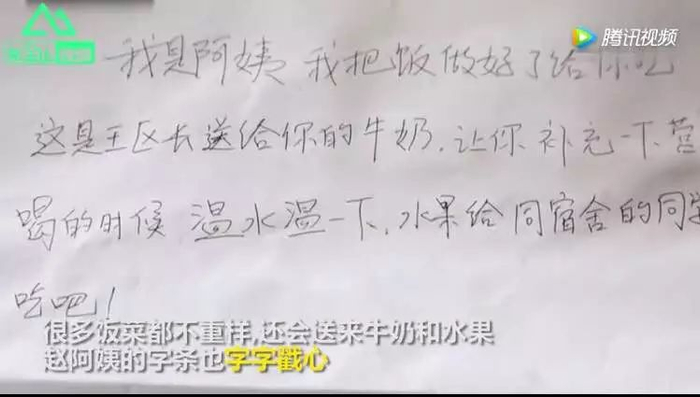 腾讯视频
我是阿姨 我把饭做好了给你吃
这是王区长送给你的牛奶.让你补充一下营
喝的时候 温水温一下.水果给同宿舍的同学
吃吧!
很多饭菜都不重样,还会送来牛奶和水果
赵阿姨的字条也字字戳心